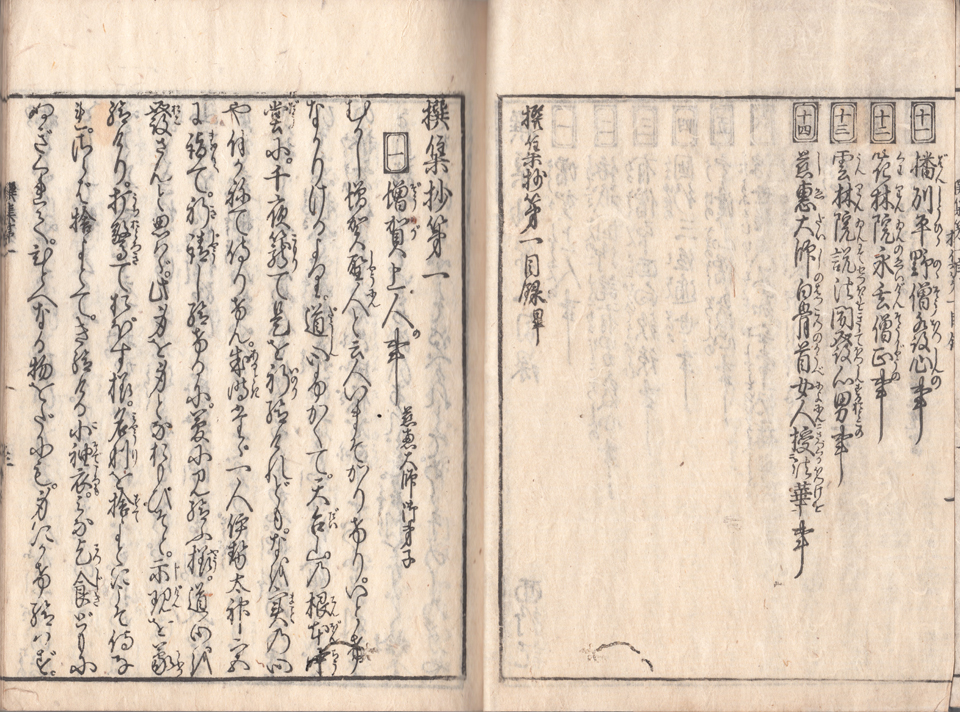 十一 播列平野僧某發心事
十二 花林院永玄僧正事
十三 雲林院説法聞發心男事
十四 慈惠大師白骨首女人授法華事
撰集抄第一目録畢
撰集抄第一
一 増賀上人事 慈惠大師御弟子
むかし増賀聖人と云人いまそかりけり。いとけ
なかりけるより。道心ふかくて。天台山乃根本中
堂に。千夜篭て是を祈給けれども。なを実乃心
や付かねて侍りけん。或時たゞ一人伊勢太神宮
に詣て。祈請し給けるに。夢に見給ふ様。道心を
發さんと思はゞ。此身を身とな思ひそと。示現を蒙
給けり。打驚て思す様。名利を捨よとにこそ侍な
れ。さらば捨よとて。き給ける小袖衣みな乞食どもに
ぬぎくれて。ひとへなる物をだにも。身にかけ給はず。